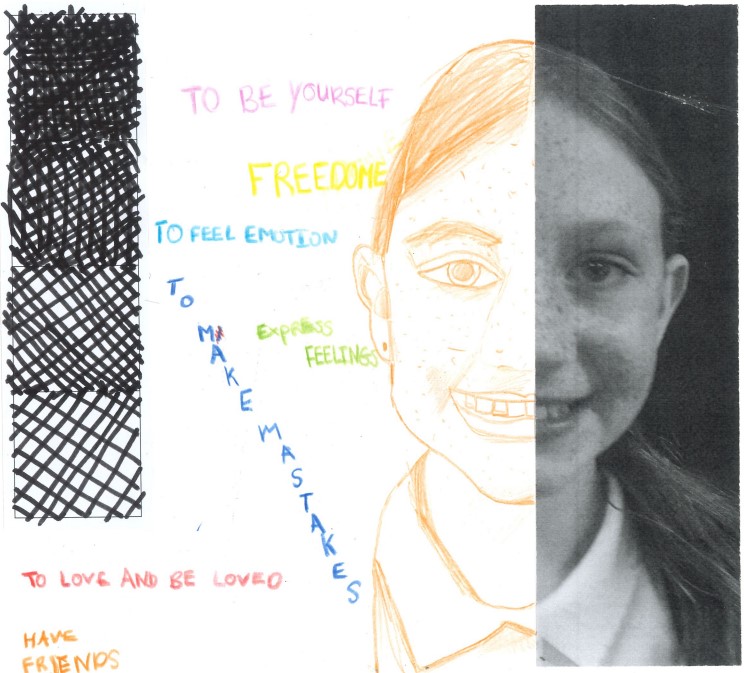 TO BE YOURSELF
FREEDOME
TO FEEL EMOTION
TO MAKE MASTAKES
EXPRESS
FEELINGS
TO LOVE AND BE LOVED
HAVE
FRIENDS